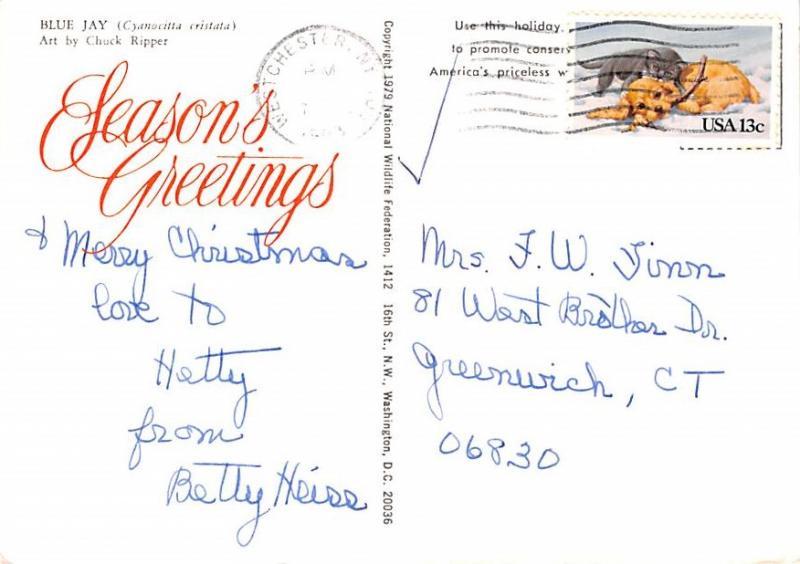 BLUE JAY (Cyanocitta cristata)
Art by Chuck Ripper
Season's
Greetings
& Merry Christmas
love to
Hetty
from
Betty Heiss
Copyright 1979 National Wildlife Federation, 1412 16th St., N.W., Washington, D.C. 20036
Use this holiday
to promote conser
America's priceless w
USA 13c
Mrs. F. W. Finn
81 West Brother Dr.
Greenwich, CT
06830